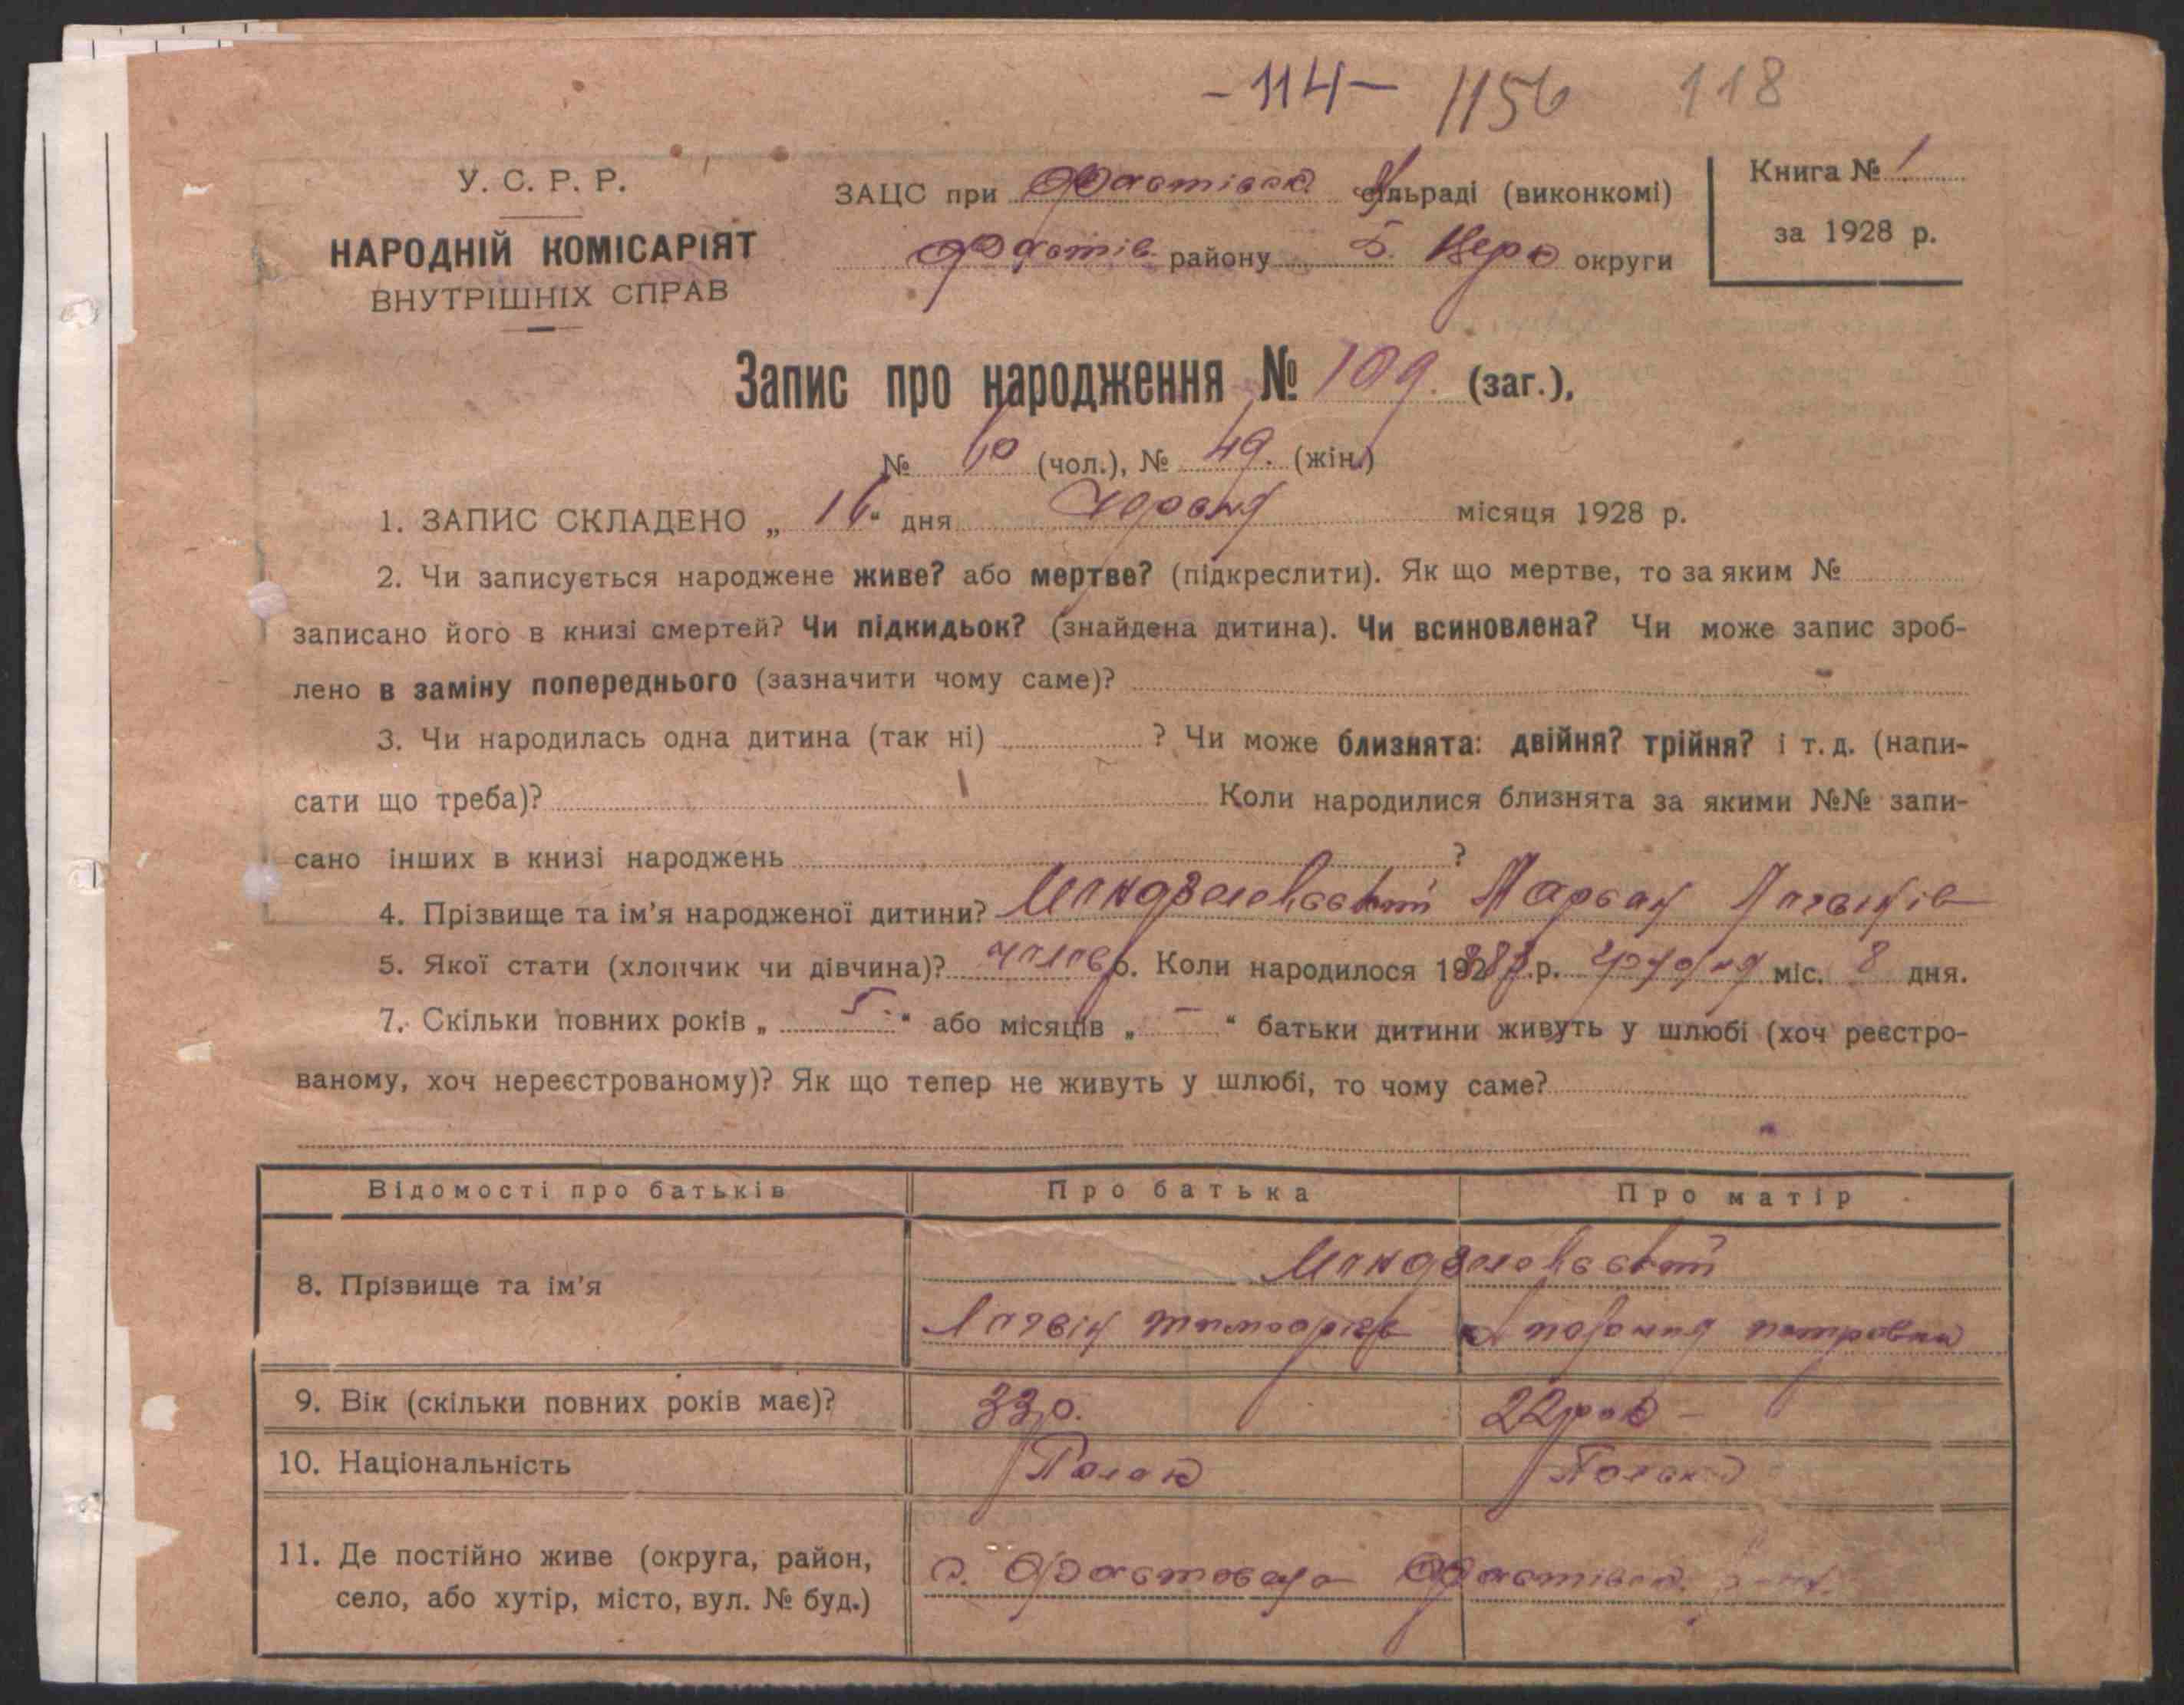 -114- 1156 118
У. С. Р. Р.
НАРОДНІЙ КОМІСАРІЯТ
ВНУТРІШНІХ СПРАВ
ЗАЦС при Фастівск. сільраді (виконкомі)
Фастів району Б. Церк округи
Книга № 1
за 1928 р.
Запис про народження № 109. (заг.),
№ 60 (чол.), № 49. (жін.)
1. ЗАПИС СКЛАДЕНО „ 16 “ дня місяця 1928 р.
2. Чи записується народжене живе? або мертве? (підкреслити). Як що мертве, то за яким №
записано його в книзі смертей? Чи підкидьок? (знайдена дитина). Чи всиновлена? Чи може запис зроб-
лено в заміну попереднього (зазначити чому саме)?
3. Чи народилась одна дитина (так ні) ? Чи може близнята: двійня? трійня? і т. д. (напи-
сати що треба)? Коли народилися близнята за якими №№ запи-
сано інших в книзі народжень ?
4. Прізвище та ім'я народженої дитини? Марьян
5. Якої стати (хлопчик чи дівчина)? чолов. Коли народилося 192 р. грудня міс. 8 дня.
7. Скільки повних років „ 5. “ або місяців „ – “ батьки дитини живуть у шлюбі (хоч реєстро-
ваному, хоч нереєстрованому)? Як що тепер не живуть у шлюбі, то чому саме?
Відомості про батьків Про батька Про матір
8. Прізвище та ім'я
петровна
9. Вік (скільки повних років має)? 33 р. 22 рок –
10. Національність Поляк Полька
11. Де постійно живе (округа, район,
село, або хутір, місто, вул. № буд.)
с. Фастовець Фастівск. р-н.